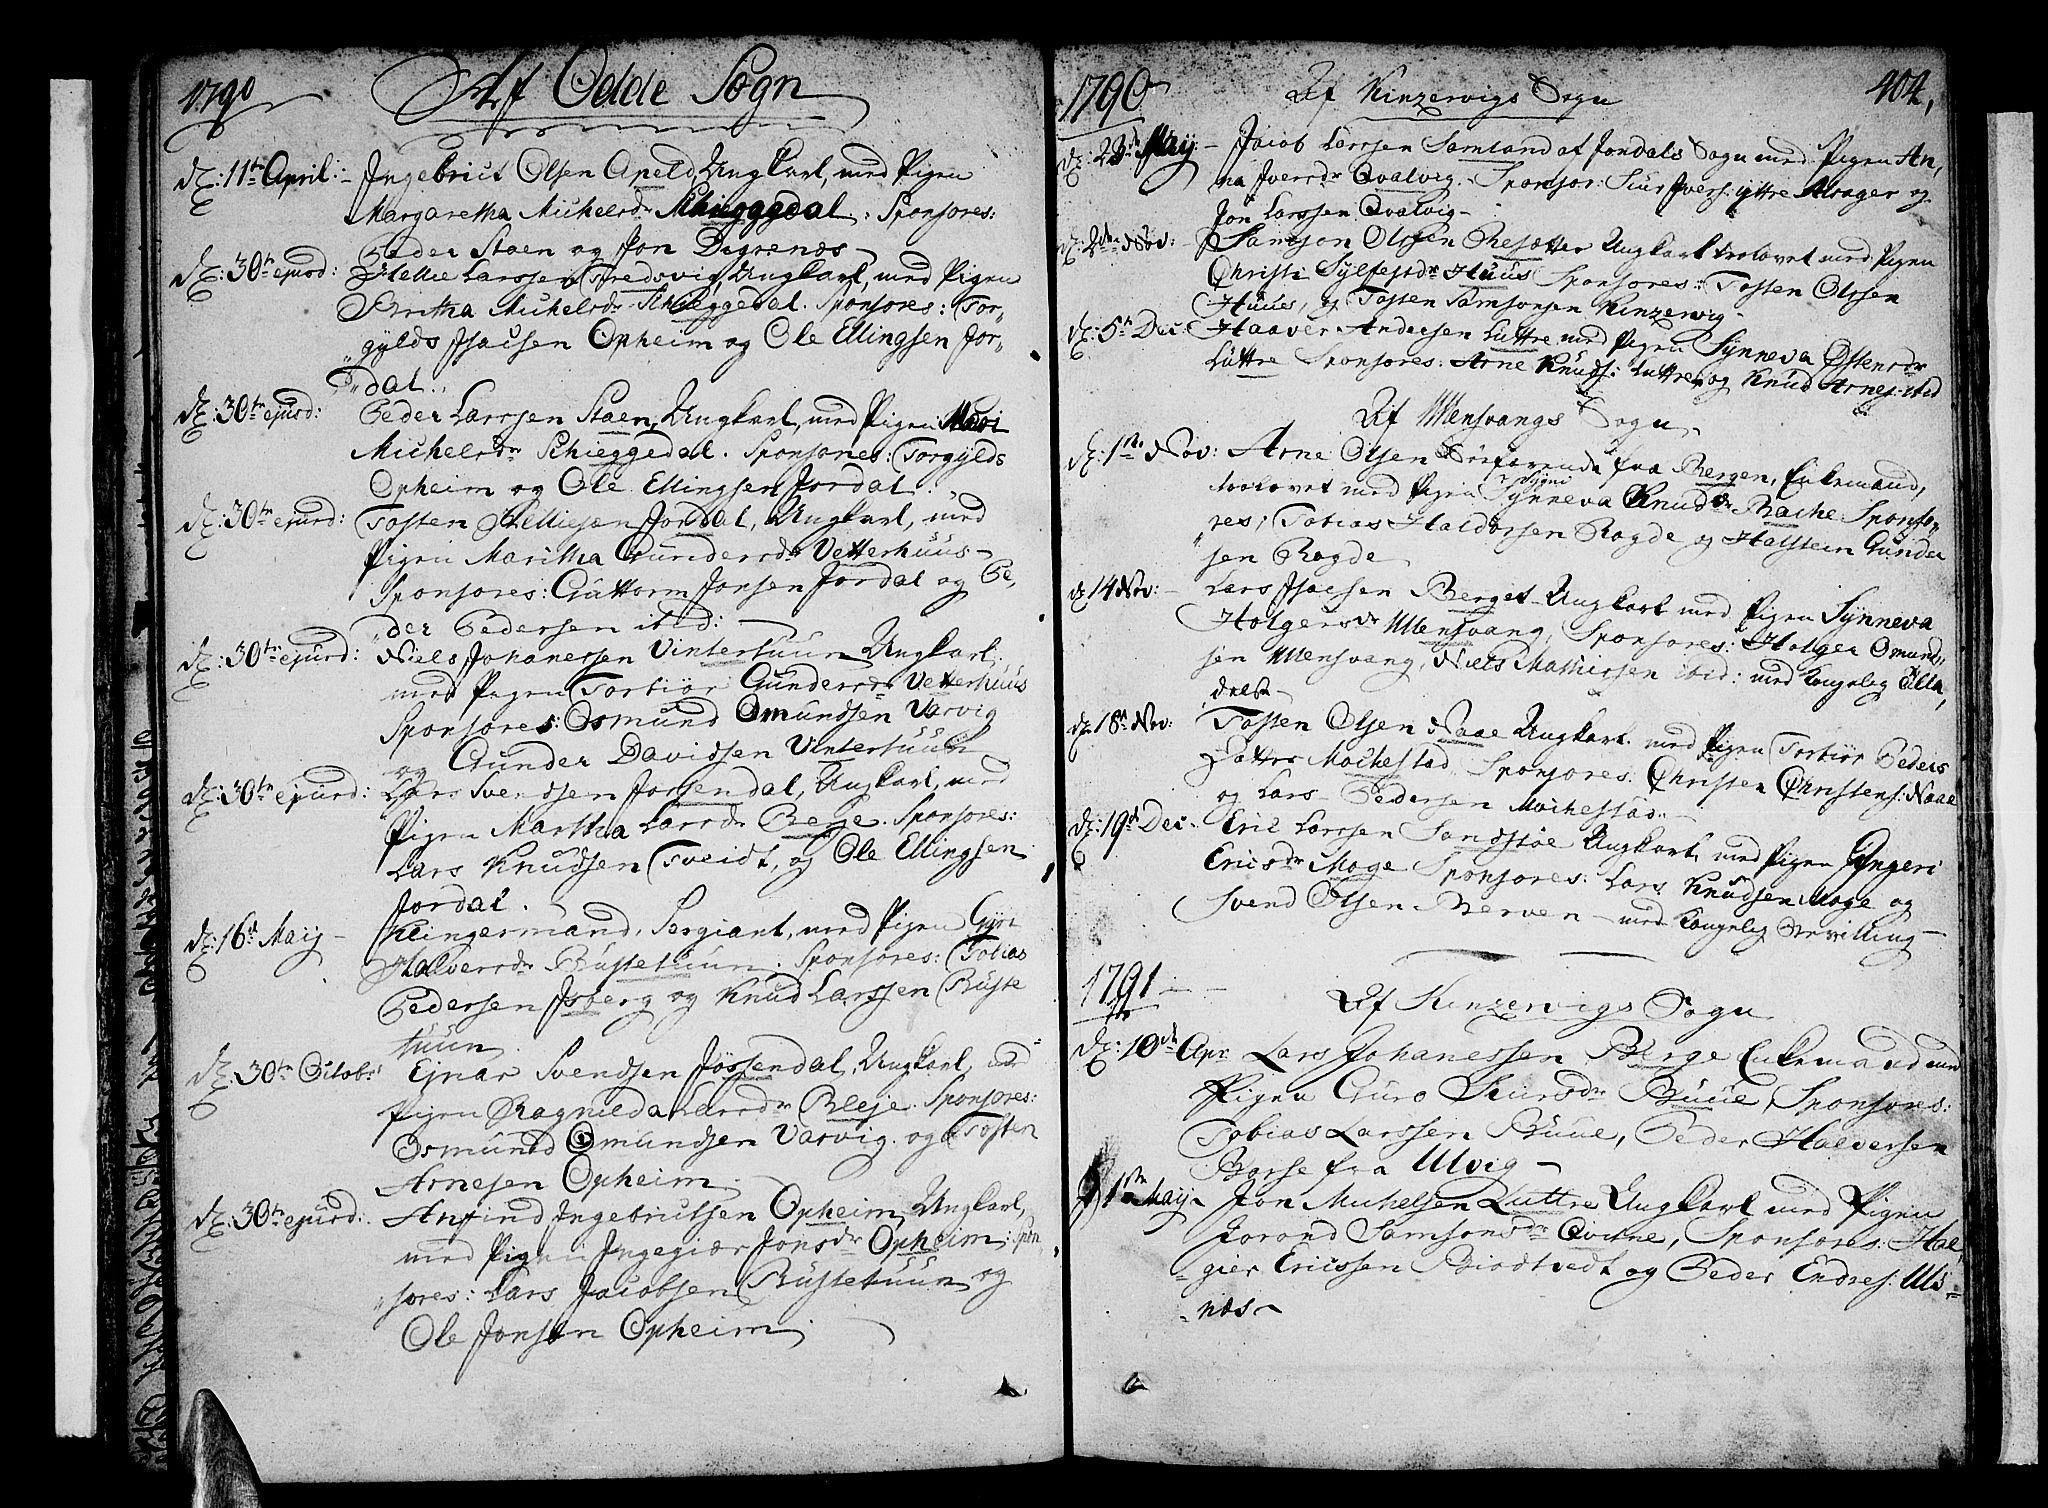 1790 Af Odde Sogn
d: 11te April: Ingebrict Olsen Apeld, Ungkarl, med Pigen
Margaretha Michelsdr Schieggedal: Sponsores:
Peder Staen og Jon Degrenæs
d: 30te ejusd: Hellie Larssen Tredsvig, Ungkarl, med Pigen
Britha Michelsdr Schieggedal. Sponsores: Tor„
„gylds Isacsen Opheim og Ole Ellingsen Jor„
„dal.
d: 30te ejusd: Peder Larssen Staen, Ungkarl, med Pigen Mari
Michelsdr Schieggedal. Sponsores: Torgylds
Opheim og Ole Ellingsen Jordal.
d: 30te ejusd: Tosten Helliesen Jordal, Ungkarl, med
Pigen Maritha Gundersdr Vetterhuus
Sponsores: Guttorm Jonsen Jordal og Pe„
„der Pedersen ibid:
d: 30te ejusd: Niels Johanessen Vintertuun Ungkarl,
med Pigen Torbiør Gundersdr Vetterhuus
Sponsores: Osmund Omundsen Varvig
og Gunder Davidsen Vintertuun
d: 30te ejusd: Lars Svendsen Jøssendal, Ungkarl, med
Pigen Martha Larsdr Bleje. Sponsores:
Lars Knudsen Tveidt, og Ole Ellingsen
Jordal.
d: 16d Maij Klingermand, Sergiant, med Pigen Gyri
Halversdr Büstetuun. Sponsores: Tobias
Pedersen Isberg og Knud Larssen Büste
tuun.
d: 30te Octobr: Ejnar Svendsen Jøssendal, Ungkarl, med
Pigen Ragnilda Larsdr Bleje. Sponsores:
Osmund Omundsen Varvig og Tosten
Arnesen Opheim
d: 30te ejusd: Anfind Ingebrictsen Opheim, Ungkarl,
med Pigen Ingegiær Jonsdr Opheim, Spon„
„sores: Lars Jacobsen Büstetuun og
Ole Jonsen Opheim.
1790 Af Kinzervigs Sogn 104,
d: 23de Maij: Jacob Larssen Samland af Jondals Sogn med Pigen An„
na Iversdr Qvalvig. Sponsor: Siur Ivers: yttre Alsager og
Jon Larssen Qvalvig
d: 2den Nov: Samson Olssen Resætter Ungkarl trolovet med Pigen
Christi Sylfestdr Huus Sponsores: Tosten Olssen
Huus, og Tosten Samsonsen Kinzervig
d: 5te Dec: Haaver Andersen Luttre med Pigen Synneva Ostensdr
Luttre Sponsores: Arne Knuds: Luttre og Knud Arnes: ibid
Af Ullensvangs Sogn
d: 1ste Nov: Arne Olsen Søefarende fra Bergen, Enkemand,
trolovet med Pigen Synneva Knudsdr Bache Sponso„
„res; Tobias Haldorsen Rogde og Halstein Gunder
sen Rogde
d: 14 Nov: Lars Isacsen Berget Ungkarl med Pigen Synneva
Holgersdr Ullensvang, Sponsores: Holger Omund„
sen Ullensvang, Niels Mathissen ibid: med Kongelig Tilla„
delse
d: 18d Nov: Tosten Olsen Naae Ungkarl med Pigen Torbiør Peders
Datter Mochestad Sponsores: Christen Christens: Naae
og Lars Pedersen Mochestad.
d: 19d Dec. Eric Larssen Sandstøe Ungkarl, med Pigen Ingeri
Ericsdr Moge Sponsores: Lars Knudsen Moge og
Svend Olsen Berven — med Kongelig Bevilling
1791 Af Kinzervigs Sogn
d: 10de Apr: Lars Johanessen Berge Enkemand med
Pigen Guro Siursdr Büue, Sponsores:
Tobias Larssen Büue, Peder Halversen
Børse fra Ulvig
1ste Maij Jon Michelsen Luttre Ungkarl med Pigen
Jorand Samsonsdr Qvinne, Sponsores: Hal„
„gier Ericssen Biodtvedt og Peder Endres: Uls„
„næs